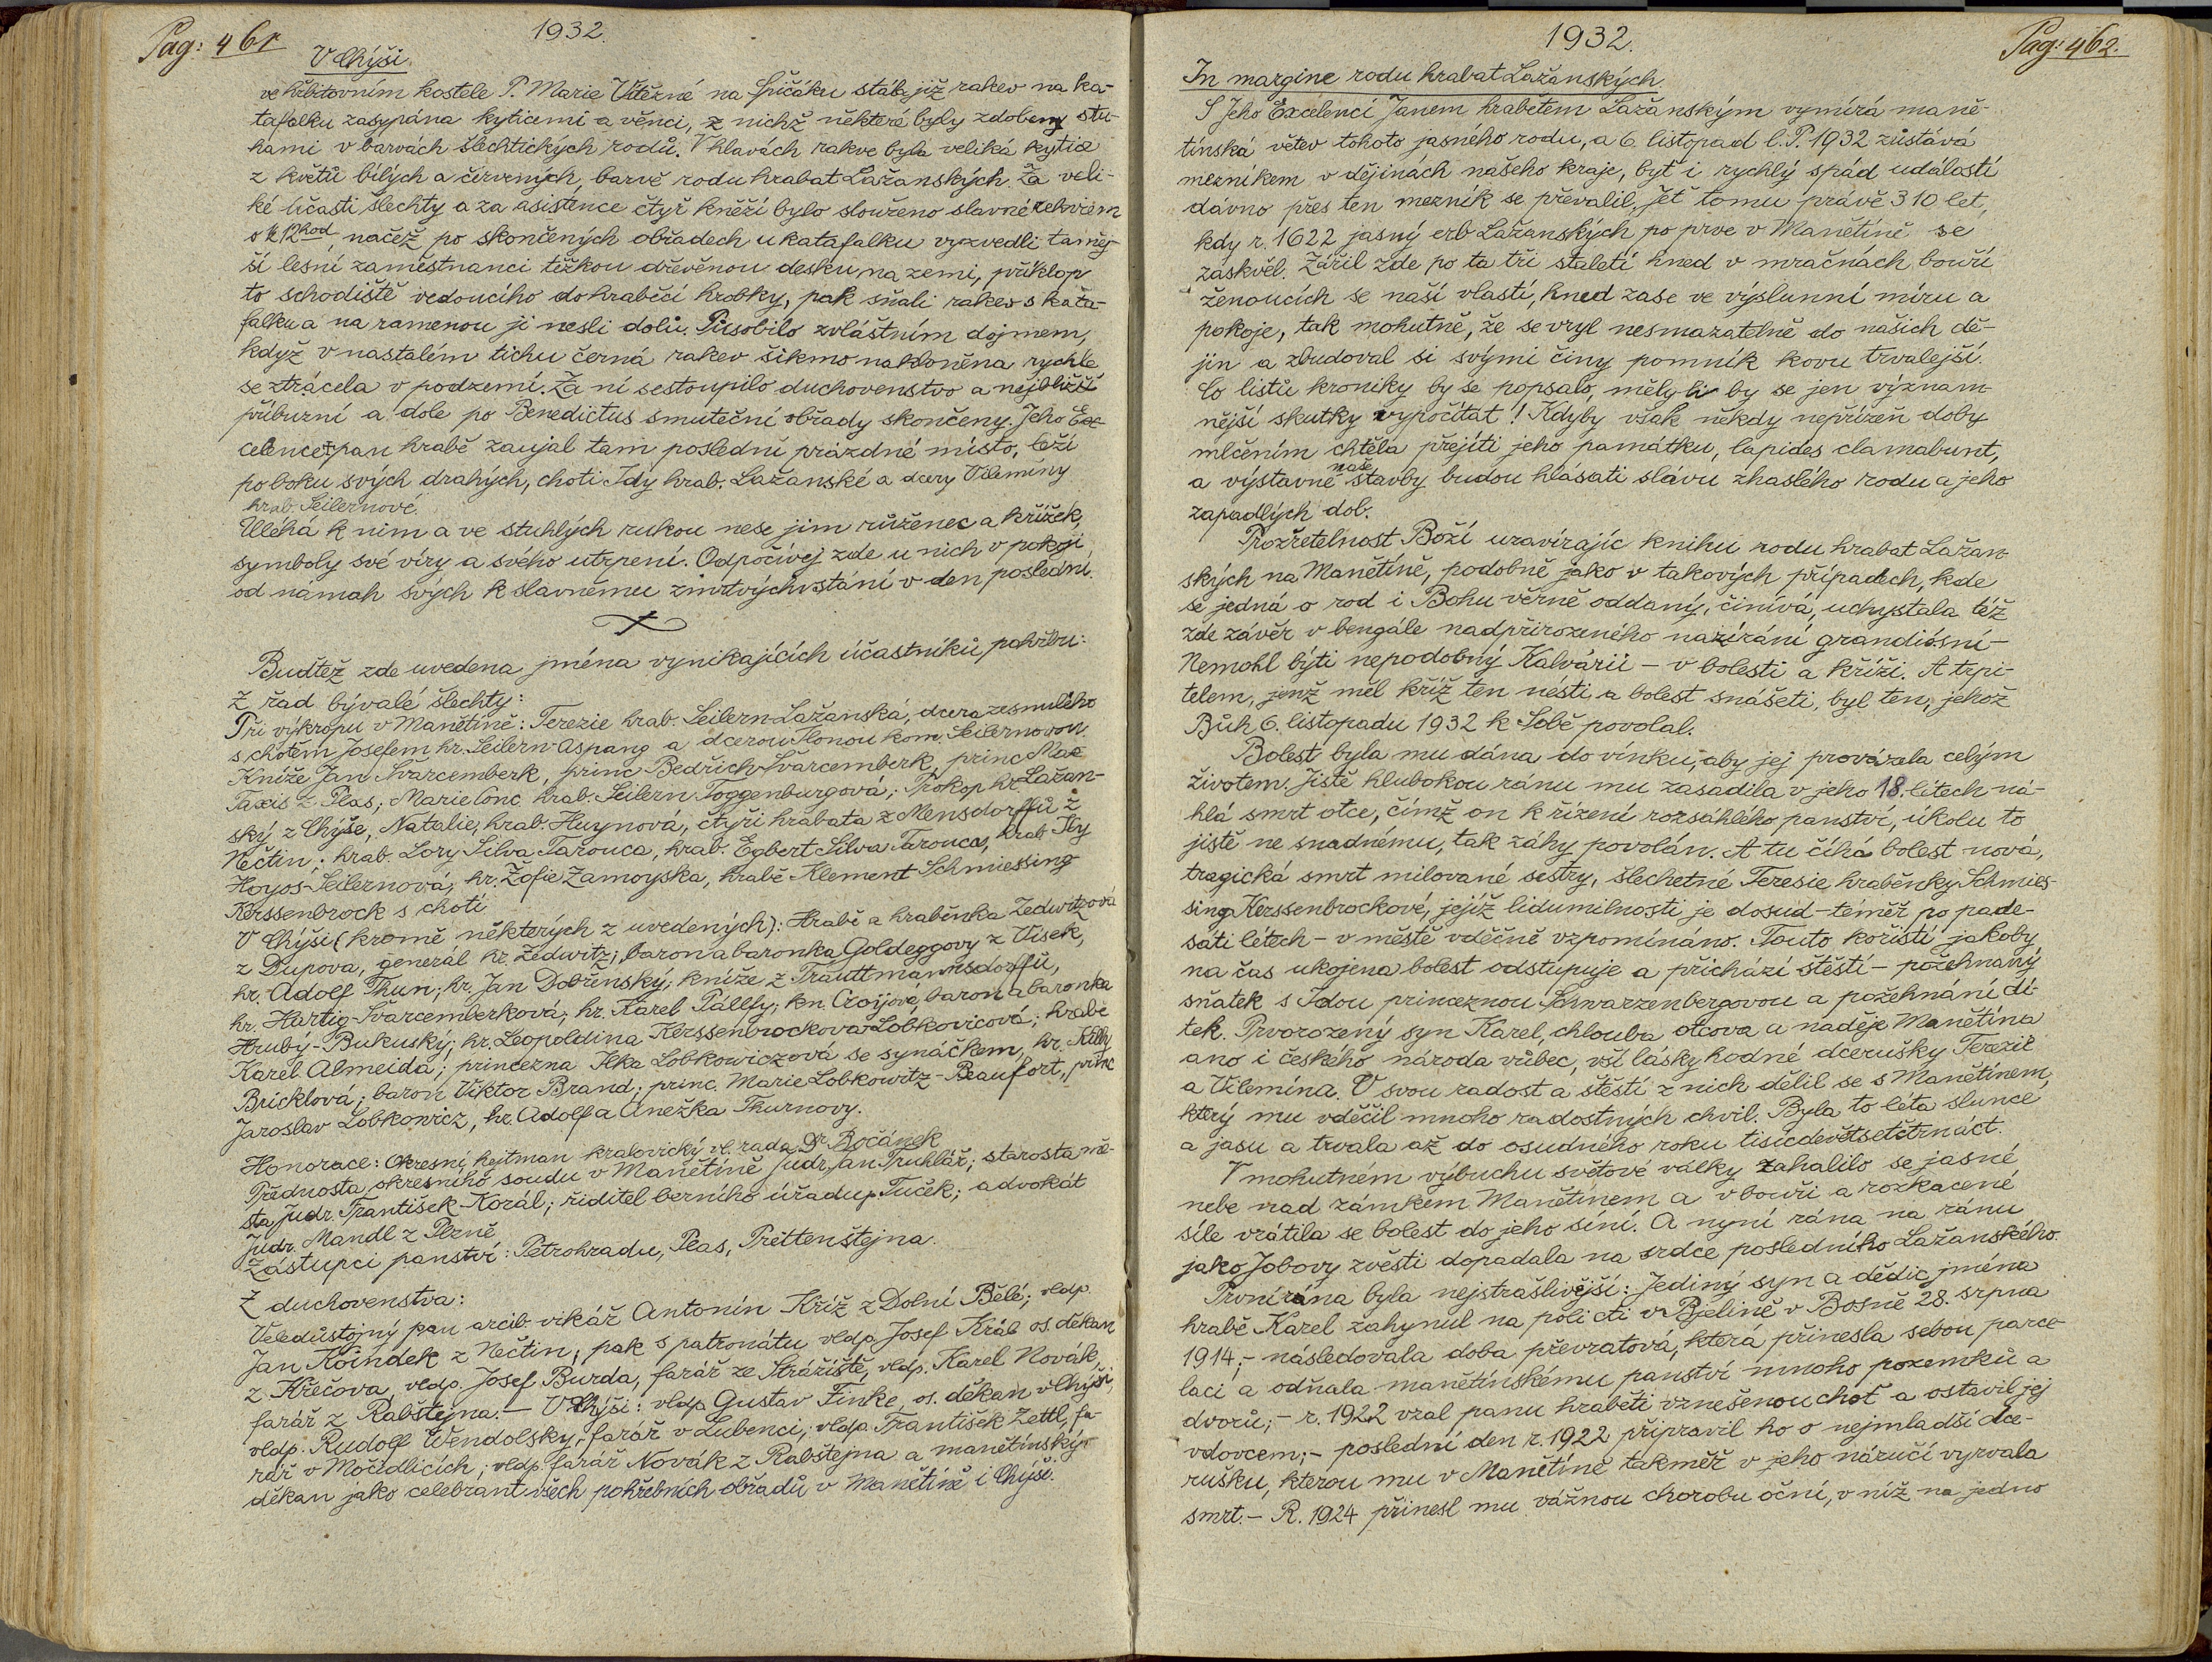 Pag: 461
1932.
V Chýši.
ve hřbitovním kostele P. Marie Vítězné na Špičáku stála již rakev na ka-
tafalku zasypána kyticemi a věnci, z nichž některé byly zdobeny stu-
hami v barvách šlechtických rodů. V hlavách rakve byla veliká kytice
z květů bílých a červených, barvě rodu hrabat Lažanských. Za veli-
ké účasti šlechty a za asistence čtyř kněží bylo slouženo slavné rekviem
o ½ 12 hod, načež po skončených obřadech u katafalku vyzvedli taměj-
ší lesní zaměstnanci těžkou dřevěnou desku na zemi, příklop
to schodiště vedoucího do hraběcí hrobky, pak sňali rakev s kata-
falku a na ramenou ji nesli dolů. Působilo zvláštním dojmem,
když v nastalém tichu černá rakev šikmo nakloněna rychle
se ztrácela v podzemí. Za ní sestoupilo duchovenstvo a nejbližší
příbuzní a dole po Benedictus smuteční obřady skončeny. Jeho Ex-
celence pan hrabě zaujal tam poslední prázdné místo, leží
po boku svých drahých, choti Idy hrab. Lažanské a dcery Vilemíny
hrab. Seilernové.
Uléhá k nim a ve stuhlých rukou nese jim růženec a křížek,
symboly své víry a svého utrpení. Odpočívej zde u nich v pokoji,
od námah svých k slavnému zmrtvýchvstání v den poslední.
Budtež zde uvedena jména vynikajících účastníků pohřbu:
Z řad bývalé šlechty:
Při výkropu v Manětíně: Terezie hrab. Seilern-Lažanská, dcera zesnulého
s chotěm Josefem hr. Seilern-Aspang a dcerou Ilonou kom. Seilernovou.
Kníže Jan Švarcemberk, princ Bedřich Švarcemberk, princ Max
Taxis z Plas; Marie Conc. hrab. Seilern Toggenburgová; Prokop hr. Lažan-
ský z Chýše, Natalie, hrab. Huynová, čtyři hrabata z Mensdorffů z
Nečtin; hrab. Lory Silva Tarouca, hrab. Egbert Silva Tarouca, hrab. Ily
Hoyos-Seilernová, hr. Žofie Zamoyska, hrabě Klement Schmiessing
Kerssenbrock s chotí
V Chýši (kromě některých z uvedených): Hrabě a hraběnka Zedwitzová
z Dupova, generál hr. Zedwitz; baron a baronka Goldeggovy z Vísek,
hr. Adolf Thun; hr. Jan Dobřenský; kníže z Trauttmannsdorffů,
hr. Hartig-Švarcemberková; hr. Karel Pálffy; kn. Croijová, baron a baronka
Hruby-Bukuský; hr. Leopoldina Kerssenbrocková-Lobkovicová; hrabě
Karel Almeida; princezna Ilka Lobkowiczová se synáčkem, hr.
Bricklová; baron Viktor Brand; princ. Marie Lobkowitz-Beaufort, princ
Jaroslav Lobkowicz, hr. Adolf a Anežka Thurnovy.
Honorace: Okresní hejtman kralovický vl. rada Dr. Bočánek
Přednosta okresního soudu v Manětíně Judr. Jan Truhlář; starosta mě-
sta Judr. František Korál; řiditel berního úřadu p. Tuček; advokát
Judr. Mandl z Plzně
Zástupci panství: Petrohradu, Plas, Prettenštejna.
Z duchovenstva:
Veledůstojný pan arcib. vikář Antonín Kříž z Dolní Bělé; vldp.
Jan Koindek z Nečtin; pak s patronátu vldp. Josef Král os. děkan
z Křečova, vldp. Josef Burda, farář ze Strážiště, vldp. Karel Novák,
farář z Rabštejna. - V Chýši: vldp. Gustav Finke, os. děkan v Chýši,
vldp. Rudolf Wendolsky, farář v Lubenci; vldp. František Zettl, fa-
rář v Močidlicích; vldp. farář Novák z Rabštejna a manětínský
děkan jako celebrant všech pohřebních obřadů v Manětíně i Chýši.
1932.
Pag: 462.
In margine rodu hrabat Lažanských.
S Jeho Excelencí Janem hrabětem Lažanským vymírá maně-
tínská větev tohoto jasného rodu, a 6. listopad l. P. 1932 zůstává
mezníkem v dějinách našeho kraje, byť i rychlý spád událostí
dávno přes ten mezník se převalil, jeť tomu právě 310 let,
kdy r. 1622 jasný erb Lažanských po prve v Manětíně se
zaskvěl. Zářil zde po ta tři staletí hned v mračnách bouří
ženoucích se naší vlastí, hned zase ve výslunní míru a
pokoje, tak mohutně, že se vryl nesmazatelně do našich dě-
jin a zbudoval si svými činy pomník kovu trvalejší.
Co listů kroniky by se popsalo, měly-li by se jen význam-
nější skutky vypočítat! Kdyby však někdy nepřízeň doby
mlčením chtěla přejíti jeho památku, lapides clamabunt,
a výstavné naše stavby budou hlásati slávu zhaslého rodu a jeho
zapadlých dob.
Prozřetelnost Boží uzavírajíc knihu rodu hrabat Lažan-
ských na Manětíně, podobně jako v takových případech, kde
se jedná o rod i Bohu věrně oddaný, činívá, uchystala též
zde závěr v bengále nadpřirozeného nazírání grandiósní -
Nemohl býti nepodobný Kalvárii - v bolesti a kříži. A trpi-
telem, jenž měl kříž ten nésti a bolest snášeti, byl ten, jehož
Bůh 6. listopadu 1932 k Sobě povolal.
Bolest byla mu dána do vínku, aby jej provázela celým
životem. Jistě hlubokou ránu mu zasadila v jeho 18. létech ná-
hlá smrt otce, čímž on k řízení rozsáhlého panství, úkolu to
jistě ne snadnému, tak záhy povolán. A tu číhá bolest nová,
tragická smrt milované sestry, šlechetné Teresie hraběnky Schmies-
sing Kerssenbrockové, jejíž lidumilnosti je dosud - téměř po pade-
sáti létech - v městě vděčně vzpomínáno. Touto kořistí jakoby
na čas ukojena bolest odstupuje a přichází štěstí - požehnaný
sňatek s Idou princeznou Schwarzenbergovou a požehnání dí-
tek. Prvorozený syn Karel, chlouba otcova a naděje Manětína
ano i českého národa vůbec, vší lásky hodné dcerušky Terezie
a Vilemína. V svou radost a štěstí z nich dělil se s Manětínem,
který mu vděčil mnoho radostných chvil. Byla to léta slunce
a jasu a trvala až do osudného roku tisícdevětsetčtrnáct.
V mohutném výbuchu světové války zahalilo se jasné
nebe nad zámkem Manětínem a v bouři a rozkacené
síle vrátila se bolest do jeho síní. A nyní rána na ránu
jako Jobovy zvěsti dopadala na srdce posledního Lažanského.
První rána byla nejstrašlivější: Jediný syn a dědic jména
hrabě Karel zahynul na poli cti v Bjelině v Bosně 28. srpna
1914; - následovala doba převratová, která přinesla sebou parce-
laci a odňala manětínskému panství mnoho pozemků a
dvorů; - r. 1922 vzal panu hraběti vznešenou choť a ostavil jej
vdovcem; - poslední den r. 1922 připravil ho o nejmladší dce-
rušku, kterou mu v Manětíně takměř v jeho náručí vyrvala
smrt. - R. 1924 přinesl mu vážnou chorobu oční, v níž na jedno